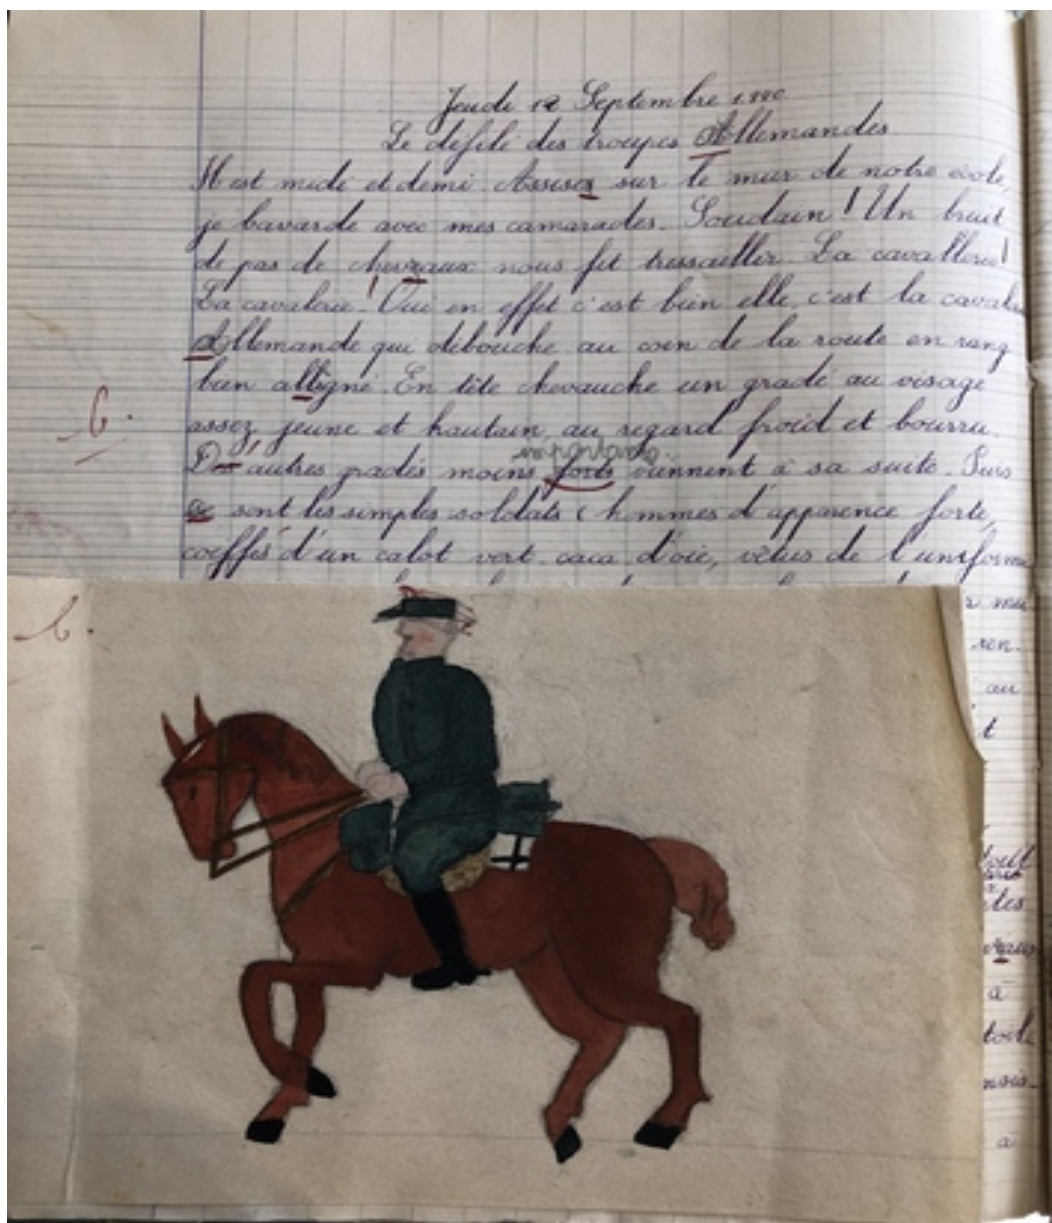 Jeudi 12 Septembre 1940.
Le défilé des troupes Allemandes.
Il est midi et demi. Assises sur le mur de notre école,
je bavarde avec mes camarades. Soudain ! Un bruit
de pas de chevraux nous fit tressailler. La cavallerie !
La cavalerie ! Oui en effet c'est bien elle, c'est la cavale
Allemande qui débouche au coin de la route en rang
bien alligné. En tête chevauche un gradé au visage
assez jeune et hautain, au regard froid et bourru.
importants.
D'autres gradés moins forts viennent à sa suite. Puis
ce sont les simples soldats (hommes d'apparence forte,
coeffés d'un calot vert caca d'oie, vêtus de l'uniforme
ren.
au
t
tout
ites
vraux
à
toile
à
b.
b.